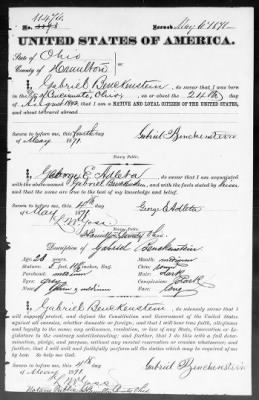 11470.
Issued May 6. 1871.
UNITED STATES OF AMERICA.
State of Ohio
County of Hamilton
I, Gabriel Benckenstein, do swear that I was born in
Cincinnati, Ohio, on or about the 24th day
of August 1842, that I am a NATIVE AND LOYAL CITIZEN OF THE UNITED STATES,
and about to travel abroad
Sworn to before me, this fourth day
of May 1871.
Gabriel Benckenstein
Notary Public.
I, George E. Adleta, do swear that I am acquainted
with the above-named Gabriel Benckenstein, and with the facts stated by him,
and that the same are true to the best of my knowledge and belief.
Sworn to before me, this 4th day
of May 1871.
George E Adleta
Notary Public.
Hamilton County Ohio
Description of Gabriel Benckenstein
Age: 28 years.
Mouth: medium
Stature: 5 feet, inches, Eng.
Chin: round
Forehead:
Hair: dark
Eyes: grey
Complexion: dark
Nose:
Face: long
I, Gabriel Benckenstein, do solemnly swear that I
will support, protect, and defend the Constitution and Government of the United States
against all enemies, whether domestic or foreign; and that I will bear true faith, allegiance,
and loyalty to the same, any ordinance, resolution, or law of any State, Convention or Le-
gislature to the contrary notwithstanding; and further, that I do this with a full deter-
mination, pledge, and purpose, without any mental reservation or evasion whatsoever; and
further, that I will well and faithfully perform all the duties which may be required of me
by law. So help me God.
Sworn to before me, this 4th day
of May 1871.
Gabriel Benckenstein